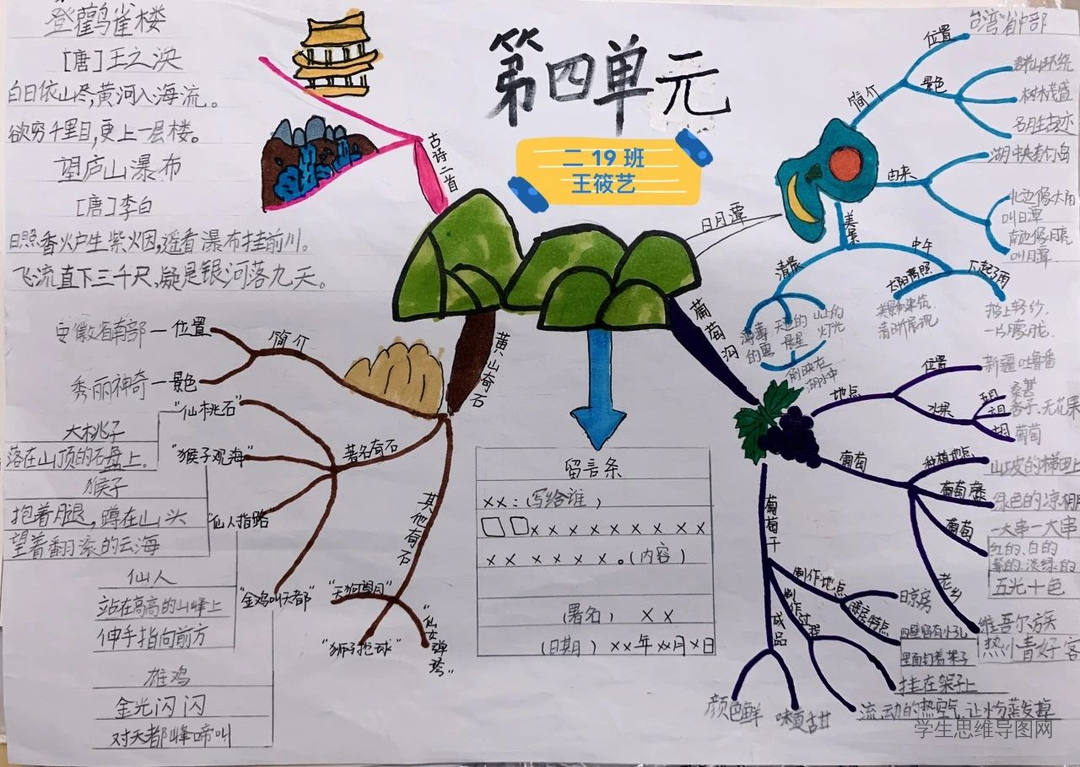 第四单元
二 19 班
王筱艺
登鹳雀楼
[唐]王之涣
白日依山尽,黄河入海流。
欲穷千里目,更上一层楼。
望庐山瀑布
[唐]李白
日照香炉生紫烟,遥看瀑布挂前川。
飞流直下三千尺,疑是银河落九天。
古诗二首
黄山奇石
简介
位置
安徽省南部
景色
秀丽神奇
著名奇石
"仙桃石"
大桃子
落在山顶的石盘上。
"猴子观海"
猴子
抱着腿,蹲在山头
望着翻滚的云海
"仙人指路"
仙人
站在高高的山峰上
伸手指向前方
"金鸡叫天都"
雄鸡
金光闪闪
对天都峰啼叫
其他奇石
"天狗望月"
"狮子抢球"
"仙女弹琴"
日月潭
简介
位置
台湾省中部
景色
群山环绕
树木茂盛
名胜古迹
由来
湖中央有个岛
北边像太阳
叫日潭
南边像月亮
叫月潭
美景
清晨
薄薄的雾
天边的晨星
山上的灯光
倒映在湖水中
中午
太阳高照
下起了雨
一片朦胧
葡萄沟
地点
位置
新疆吐鲁番
水果
杏子、无花果
葡萄
葡萄
种植地点
山坡的梯田上
绿色的凉棚
葡萄
一大串一大串
红的、白的
紫的、淡绿的
五光十色
老乡
维吾尔族
热情好客
葡萄干
制作地点
晾房
里面钉着架子
制作过程
挂在架子上
流动的热空气,让水分蒸发掉
成品
颜色鲜
味道甜
留言条
××:(写给谁)
□□×××××××××
××××××。(内容)
(署名) ××
(日期) ××年××月×日
学生思维导图网